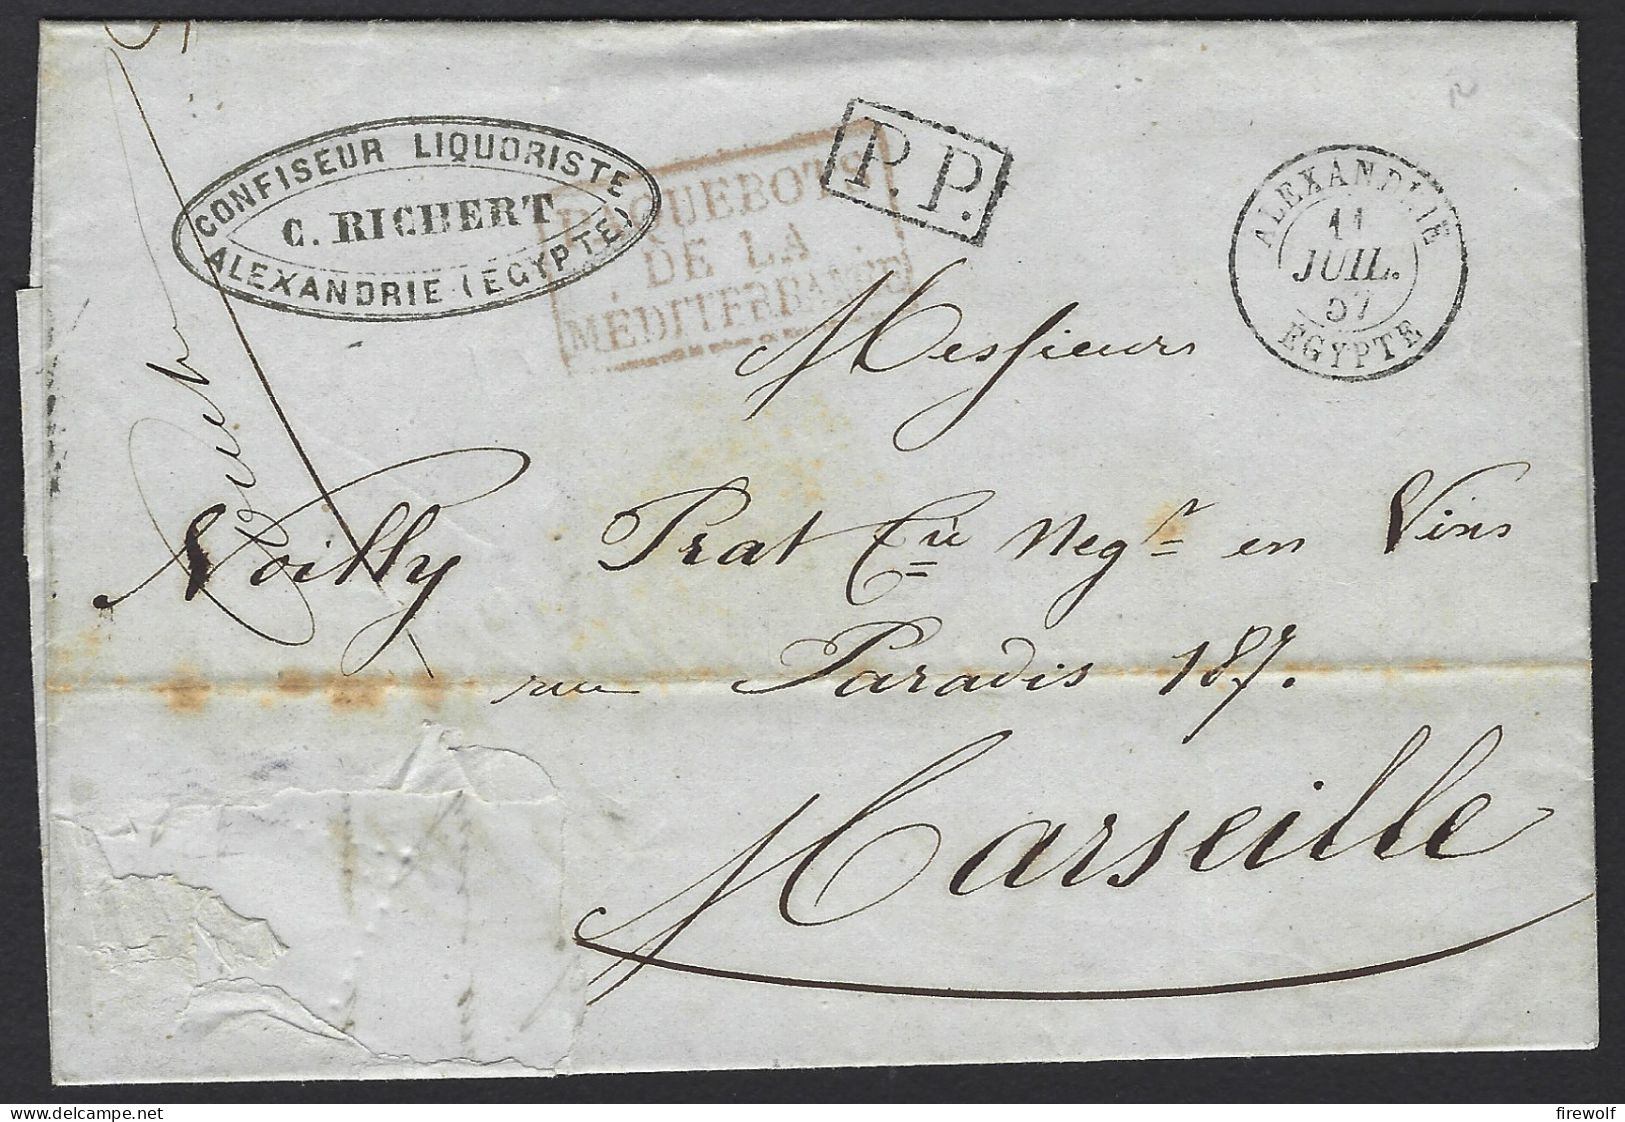 CONFISEUR LIQUORISTE
C. RICHERT
ALEXANDRIE (EGYPTE)
PAQUEBOTS
DE LA
MÉDITERRANÉE
P.P.
ALEXANDRIE
11
JUIL.
57
EGYPTE
Messieurs
Noilly Prat & Cie Negt en Vins
rue Paradis 187.
Marseille
firewolf